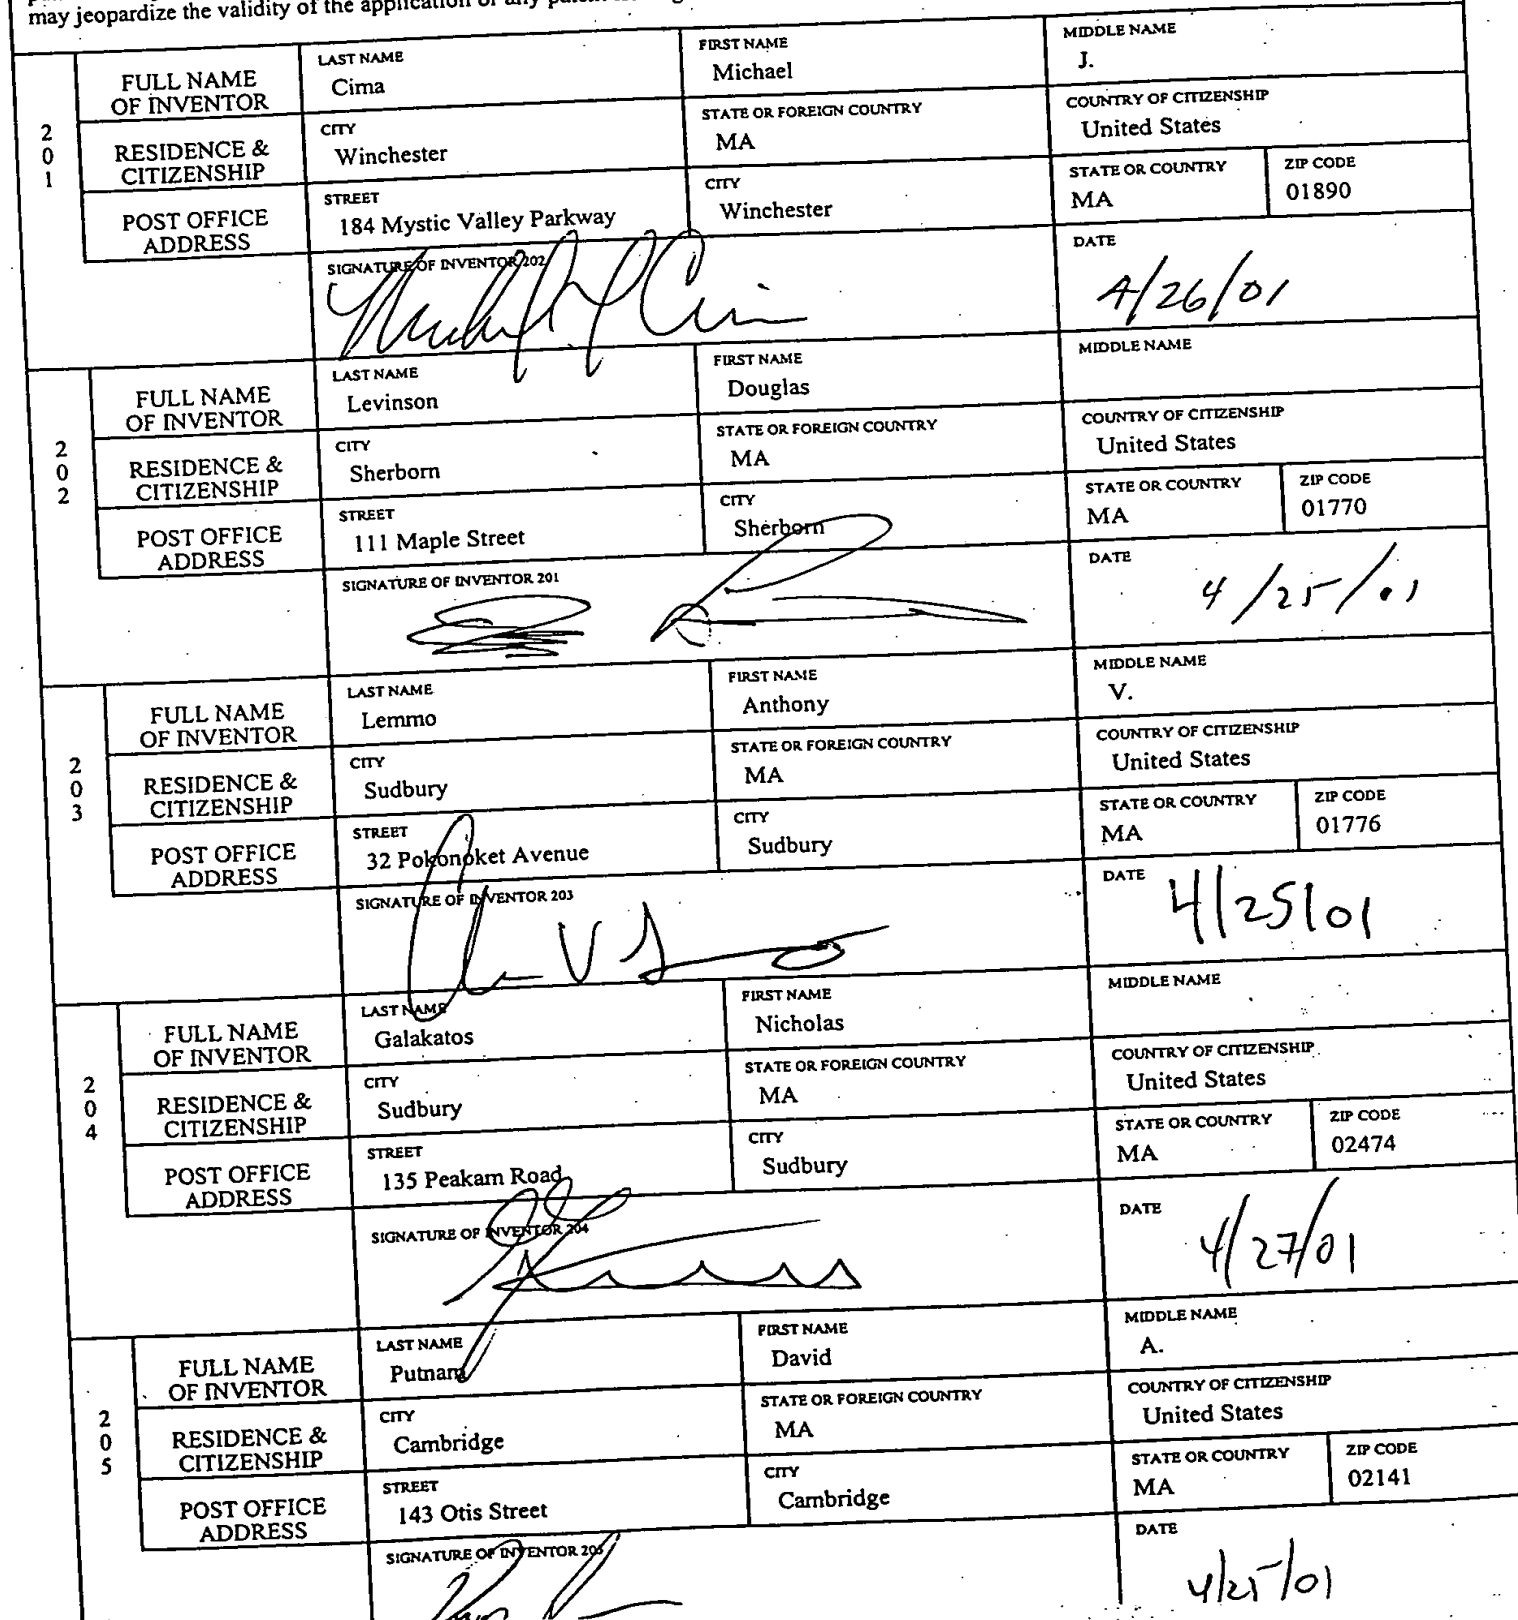 may jeopardize the validity of the application or any patent
201
FULL NAME OF INVENTOR
LAST NAME
Cima
FIRST NAME
Michael
MIDDLE NAME
J.
RESIDENCE & CITIZENSHIP
CITY
Winchester
STATE OR FOREIGN COUNTRY
MA
COUNTRY OF CITIZENSHIP
United States
POST OFFICE ADDRESS
STREET
184 Mystic Valley Parkway
CITY
Winchester
STATE OR COUNTRY
MA
ZIP CODE
01890
SIGNATURE OF INVENTOR 202
DATE
4/26/01
202
FULL NAME OF INVENTOR
LAST NAME
Levinson
FIRST NAME
Douglas
MIDDLE NAME
RESIDENCE & CITIZENSHIP
CITY
Sherborn
STATE OR FOREIGN COUNTRY
MA
COUNTRY OF CITIZENSHIP
United States
POST OFFICE ADDRESS
STREET
111 Maple Street
CITY
Sherborn
STATE OR COUNTRY
MA
ZIP CODE
01770
SIGNATURE OF INVENTOR 201
DATE
4/25/01
203
FULL NAME OF INVENTOR
LAST NAME
Lemmo
FIRST NAME
Anthony
MIDDLE NAME
V.
RESIDENCE & CITIZENSHIP
CITY
Sudbury
STATE OR FOREIGN COUNTRY
MA
COUNTRY OF CITIZENSHIP
United States
POST OFFICE ADDRESS
STREET
32 Pokonoket Avenue
CITY
Sudbury
STATE OR COUNTRY
MA
ZIP CODE
01776
SIGNATURE OF INVENTOR 203
DATE
4/25/01
204
FULL NAME OF INVENTOR
LAST NAME
Galakatos
FIRST NAME
Nicholas
MIDDLE NAME
RESIDENCE & CITIZENSHIP
CITY
Sudbury
STATE OR FOREIGN COUNTRY
MA
COUNTRY OF CITIZENSHIP
United States
POST OFFICE ADDRESS
STREET
135 Peakam Road
CITY
Sudbury
STATE OR COUNTRY
MA
ZIP CODE
02474
SIGNATURE OF INVENTOR 204
DATE
4/27/01
205
FULL NAME OF INVENTOR
LAST NAME
Putnam
FIRST NAME
David
MIDDLE NAME
A.
RESIDENCE & CITIZENSHIP
CITY
Cambridge
STATE OR FOREIGN COUNTRY
MA
COUNTRY OF CITIZENSHIP
United States
POST OFFICE ADDRESS
STREET
143 Otis Street
CITY
Cambridge
STATE OR COUNTRY
MA
ZIP CODE
02141
SIGNATURE OF INVENTOR 205
DATE
4/25/01